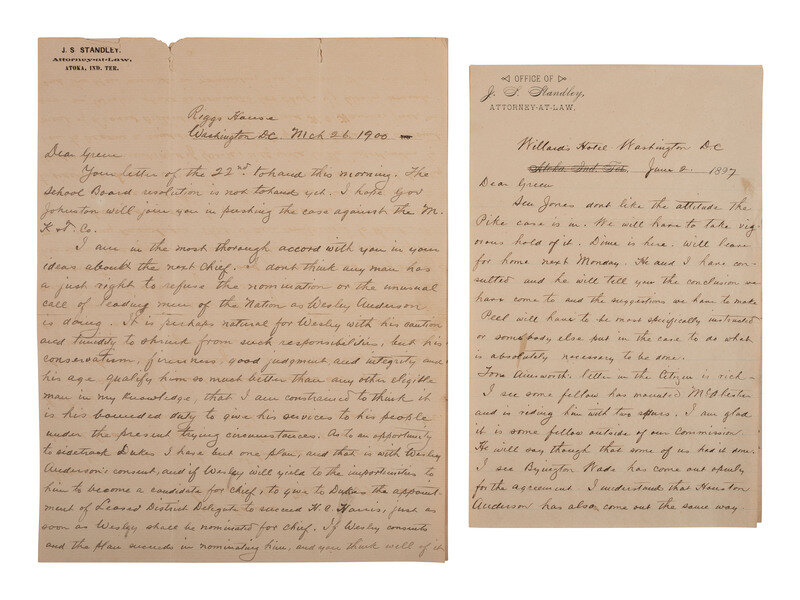 J. S. STANDLEY.
Attorney-at-Law,
ATOKA, IND. TER.
Riggs House
Washington D.C. Mch 26, 1900
Dear Green
Your letter of the 22nd tohand this morning. The
School Board resolution is not tohand yet. I hope Gov
Johnston will join you in pushing the case against the M.
K & T. Co.
I am in the most thorough accord with you in your
ideas about the next Chief. I dont think any man has
a just right to refuse the nomination or the unusual
call of leading men of the Nation as Wesley Anderson
is doing. It is perhaps natural for Wesley with his caution
and timidity to shrink from such responsibilities, but his
conservatism, firmness, good judgment and integrity and
his age, qualify him so much better than any other eligible
man in my knowledge, that I am constrained to think it
is his bounded duty to give his services to his people
under the present trying circumstances. As to an opportunity
to sidetrack Dukes I have but one plan, and that is with Wesley
Anderson's consent, and if Wesley will yield to the importunities to
him to become a candidate for Chief, to give to Dukes the appoint-
ment of Leased District Delegate to succeed H. C. Harris, just as
soon as Wesley shall be nominated for Chief. If Wesley consents
and the plan succeeds in nominating him, and you think well of it
OFFICE OF
J. S. Standley,
ATTORNEY-AT-LAW.
Willards Hotel Washington D.C
Atoka Ind. Ter. June 2. 1897
Dear Green
Sen Jones dont like the attitude the
Pike case is in. We will have to take vig-
orous hold of it. Dime is here. Will leave
for home next Monday. He and I have con-
sulted and he will tell you the conclusion we
have come to and the suggestions we have to make
Peel will have to be most specifically instructed
or somebody else put in the case to do what
is absolutely necessary to be done.
Tom Ainsworth. letter in the Citizen is rich-
I see some fellow has mounted McAlester
and is riding him with two spurs. I am glad
it is some fellow outside of our Commission.
He will say though that some of us had it done.
I see Byington Wade has come out openly
for the agreement I understand that Houston
Anderson has also come out the same way